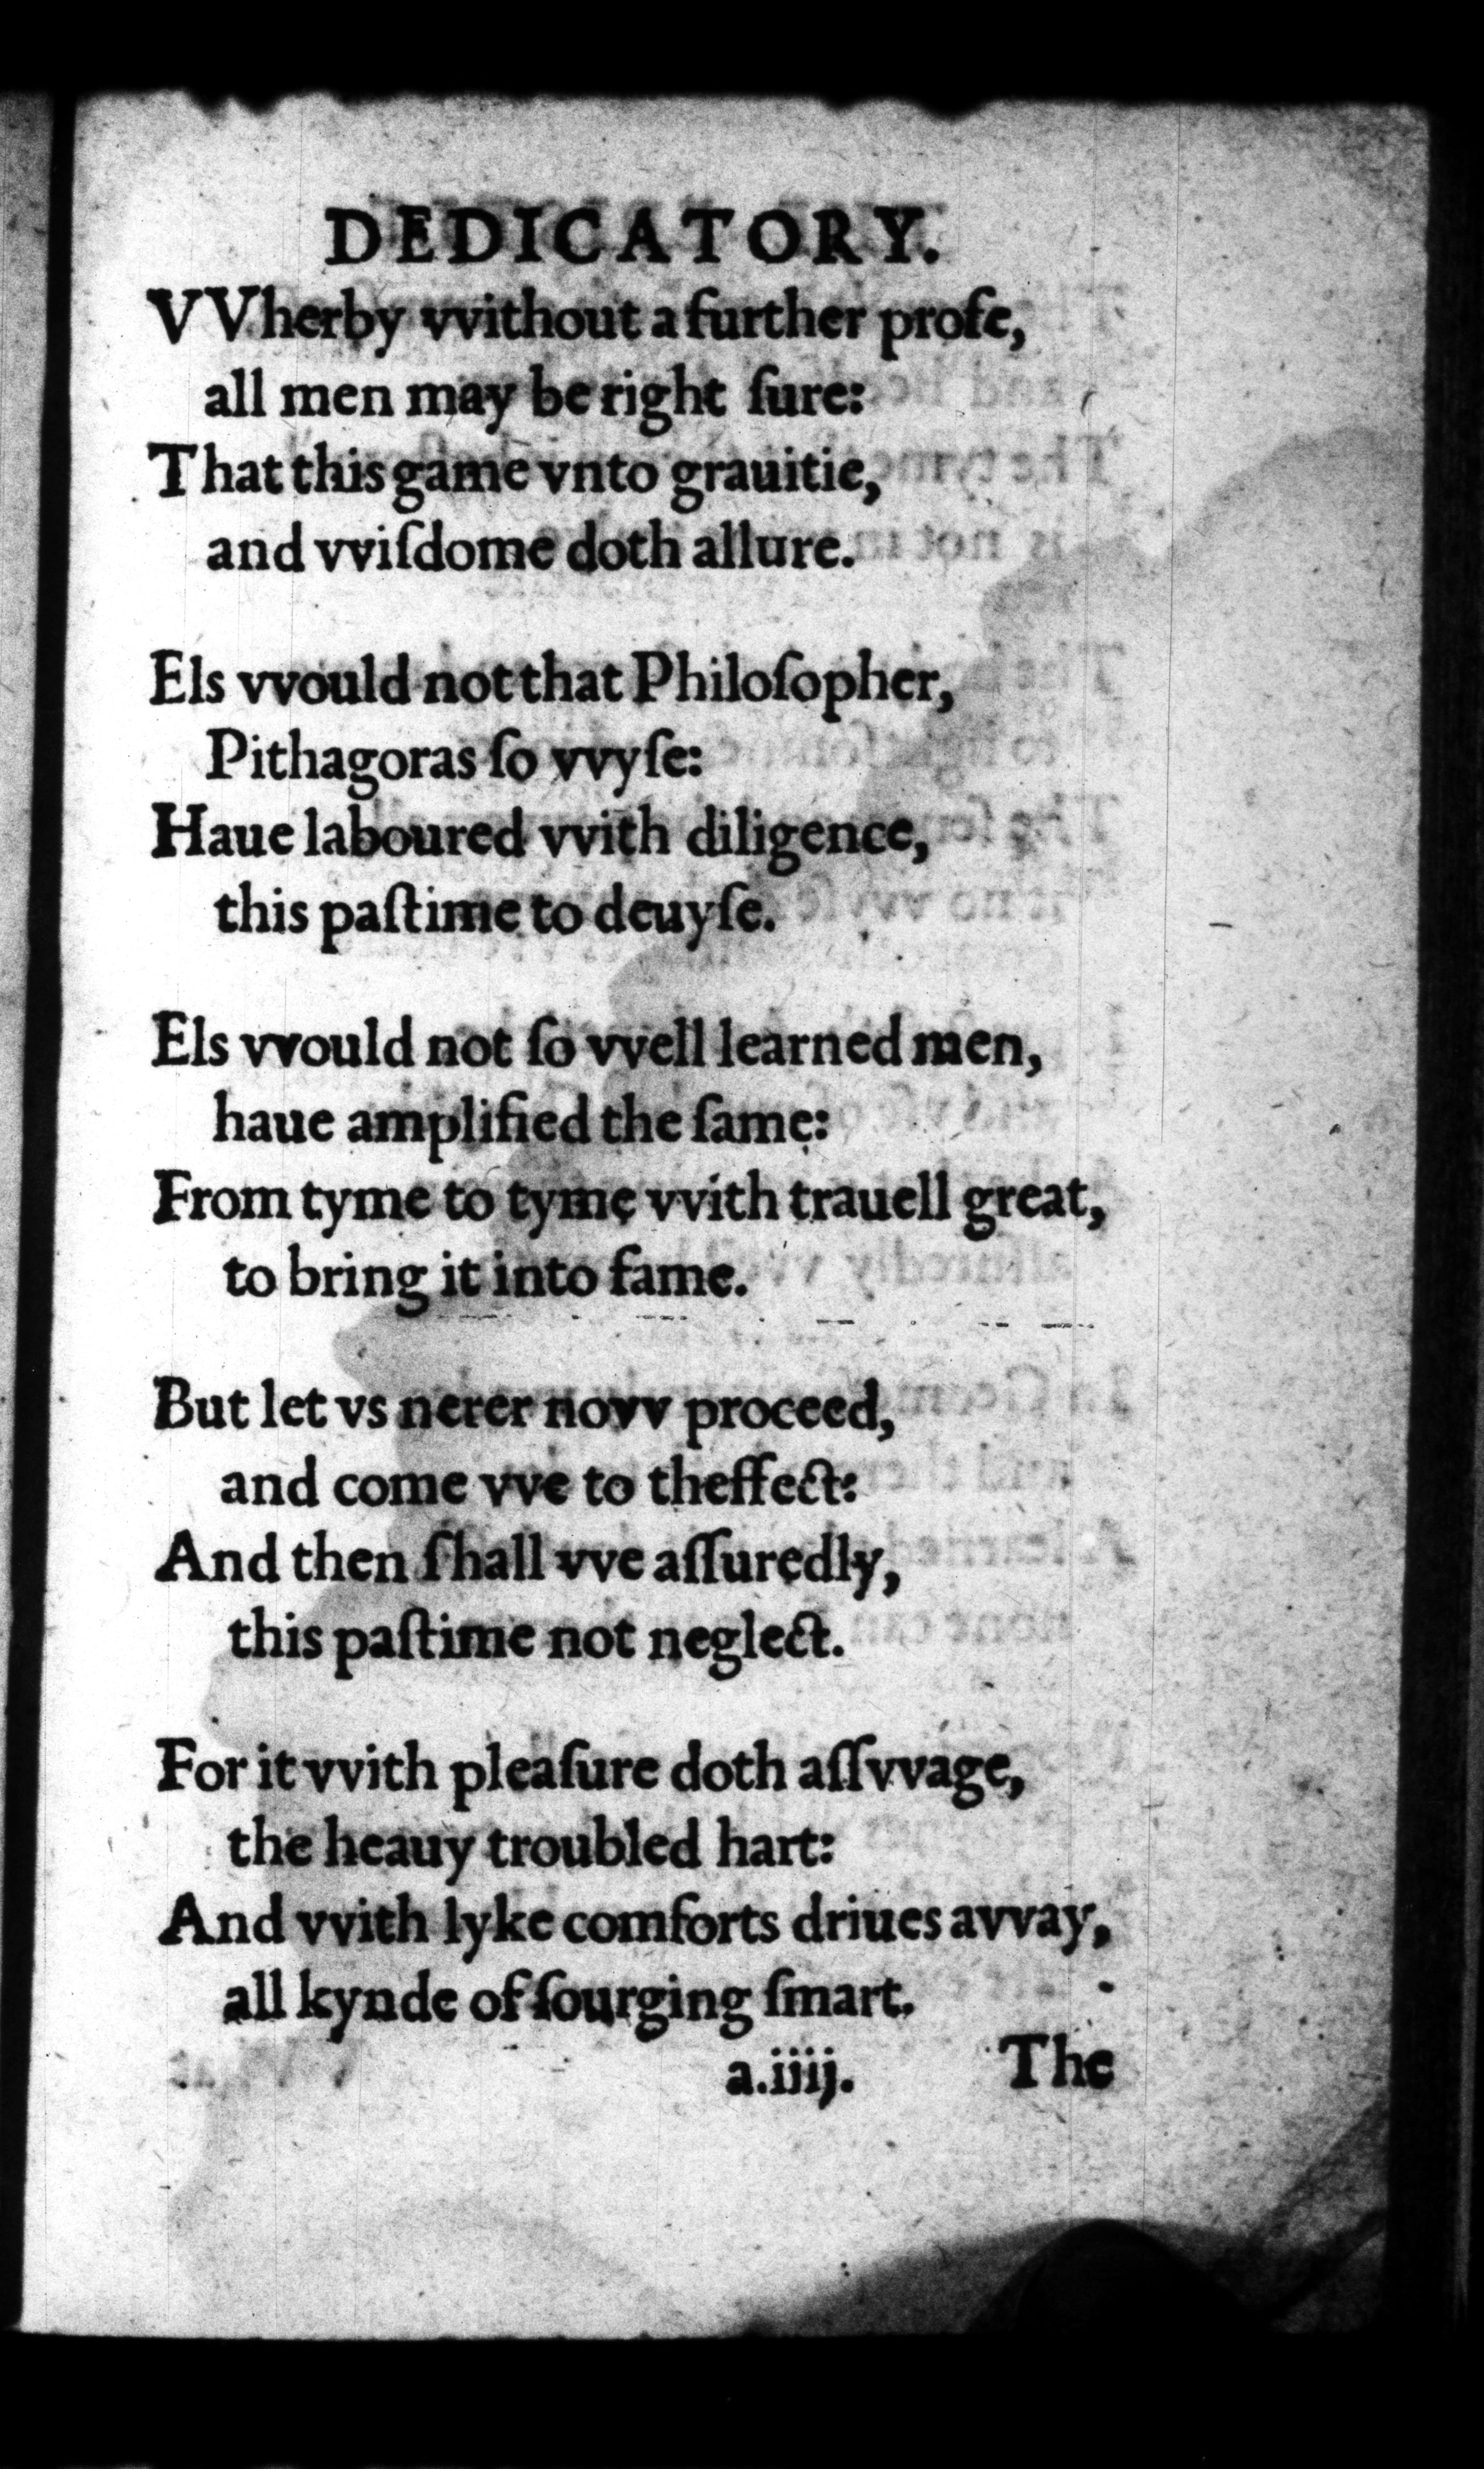 DEDICATORY.
VVherby vvithout a further profe,
all men may be right ſure:
That this game vnto grauitie,
and vviſdome doth allure.
Els vvould not that Philoſopher,
Pithagoras ſo vvyſe:
Haue laboured vvith diligence,
this paſtime to deuyſe.
Els vvould not ſo vvell learned men,
haue amplified the ſame:
From tyme to tyme vvith trauell great,
to bring it into fame.
But let vs nerer novv proceed,
and come vve to theffect:
And then ſhall vve aſſuredly,
this paſtime not neglect.
For it vvith pleaſure doth aſſvvage,
the heauy troubled hart:
And vvith lyke comforts driues avvay,
all kynde of ſourging ſmart.
a.iiij. The